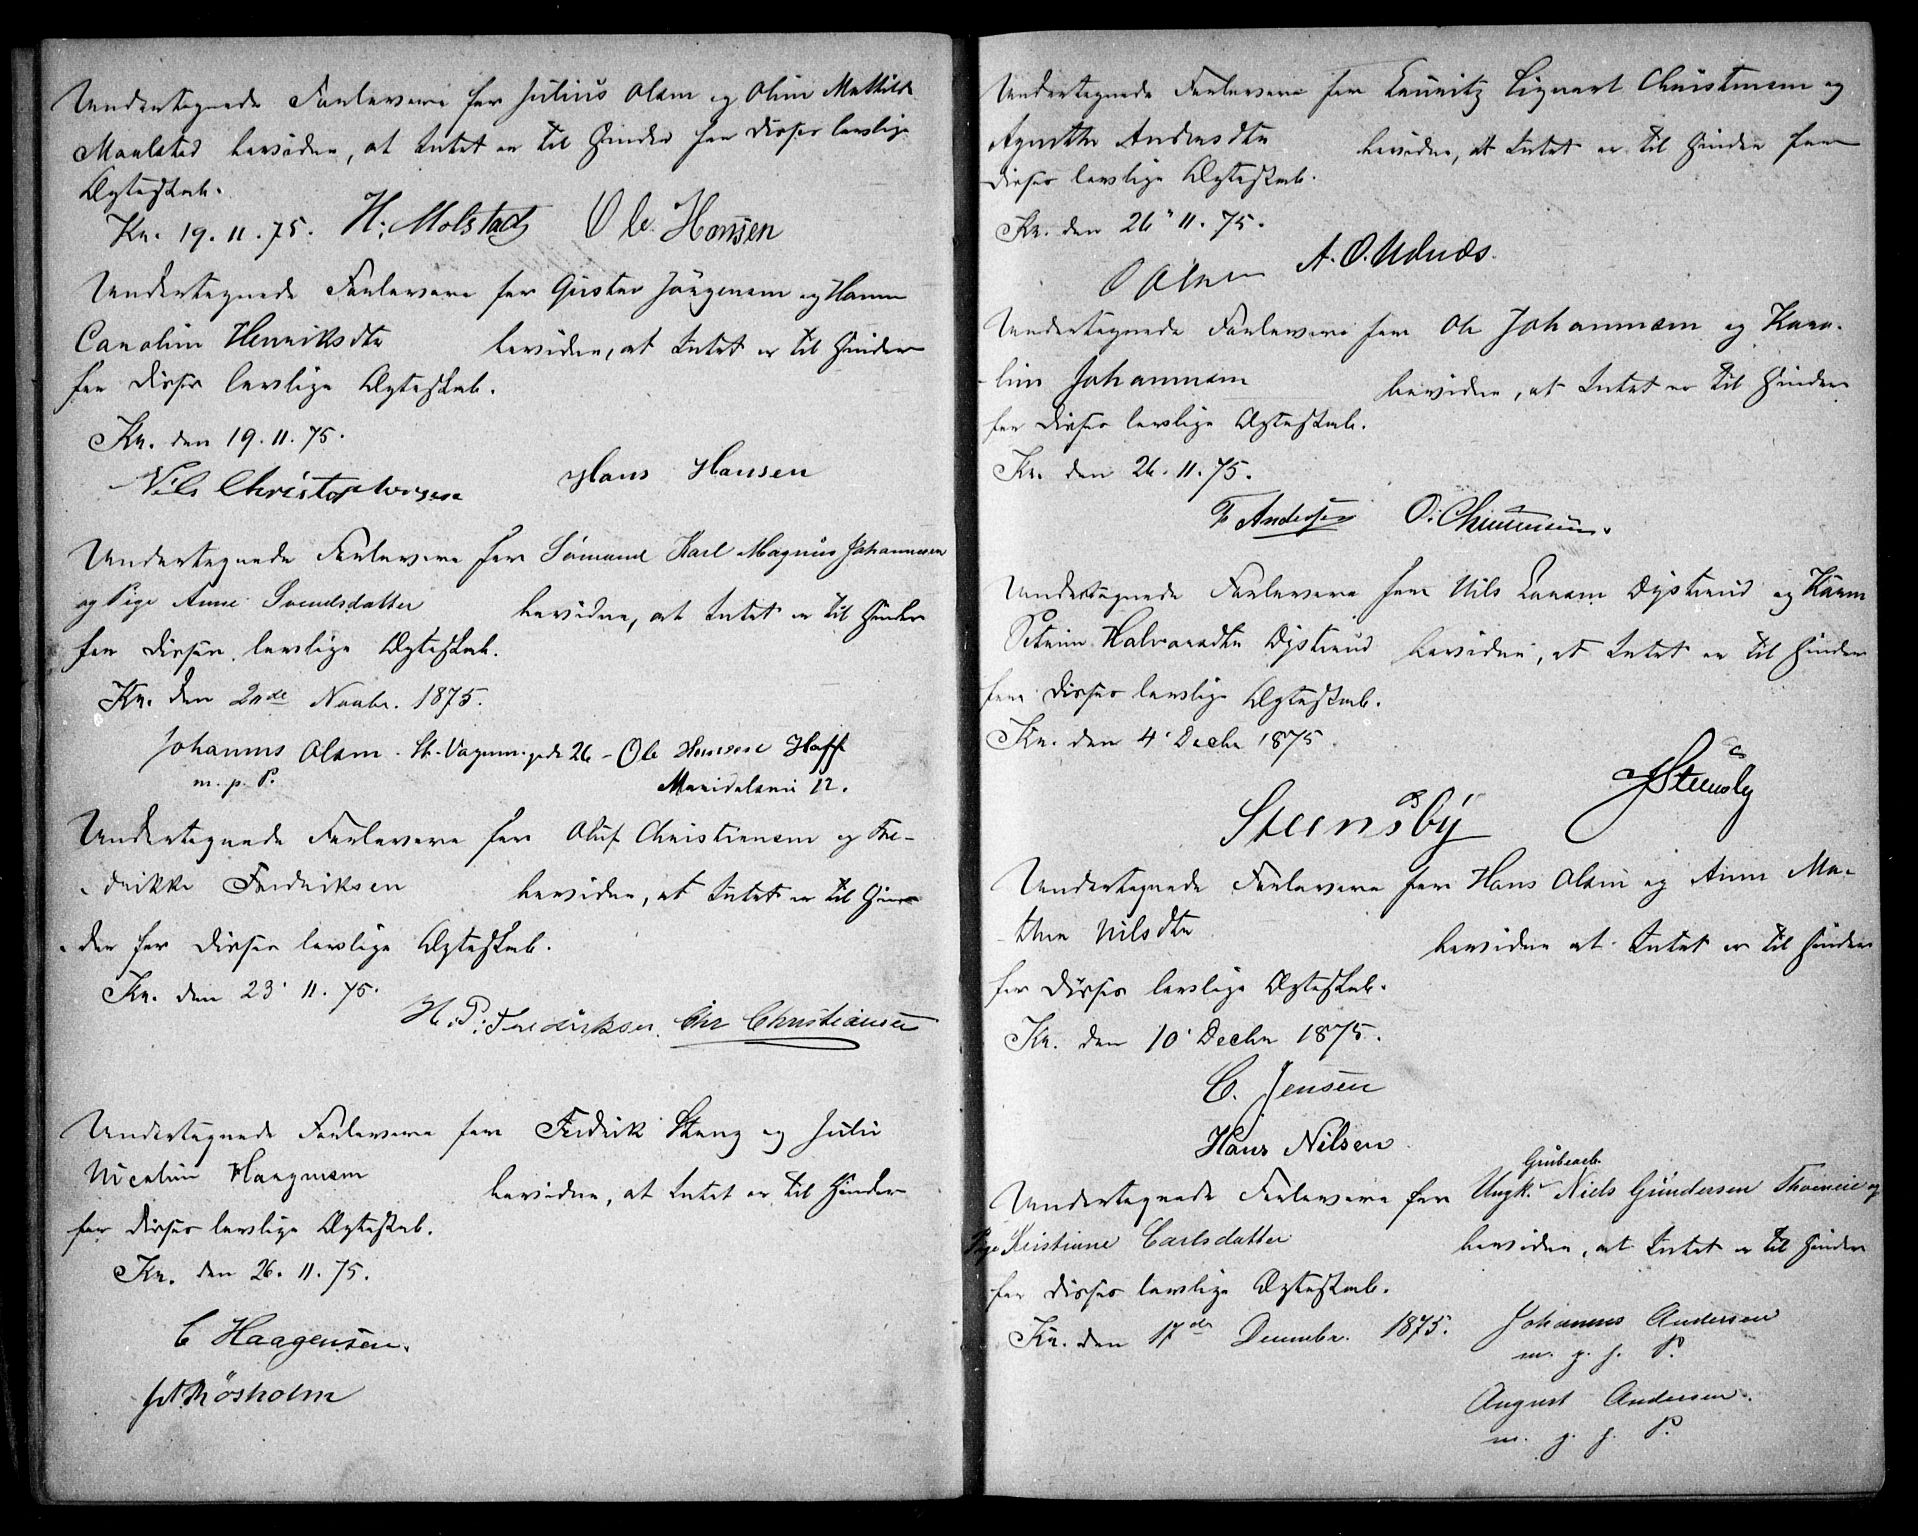 Undertegnede Forlovere for Julius Olsen og Oline Mathilde
Maalstad bevidne, at Intet er til Hinder for disses lovlige
Ægteskab.
Kr. 19.11.75. H. Molstad Ole Hansen
Undertegnede Forlovere for Gustav Jörgensen og Hanne
Caroline Henriksdtr bevidne, at Intet er til Hinder
for disses lovlige Ægteskab.
Kr. den 19.11.75.
Nils Christophersen Hans Hansen
Undertegnede Forlovere for Sømand Karl Magnus Johannesen
og Pige Anne Svendsdatter bevidne, at Intet er til Hinder
for disses lovlige Ægteskab.
Kr. den 20de Novbr. 1875.
Johannes Olsen - St. gade 26 - Ole Hansen Haff
m. p. P. Maridalsvei 12.
Undertegnede Forlovere for Oluf Christiansen og Fre-
drikke Fredriksen bevidne, at Intet er til Hin-
der for disses lovlige Ægteskab.
Kr. den 23' 11. 75.
H. P. Frederiksen. Chr Christiansen
Undertegnede Forlovere for Fredrik Stang og Julie
Nicoline Haagensen bevidne, at Intet er til Hinder
for disses lovlige Ægteskab.
Kr. den 26. 11. 75.
C Haagensen.
Undertegnede Forlovere for Christensen og
Agnethe Andersdtr bevidne, at Intet er til Hinder for
disses lovlige Ægteskab.
Kr. den 26' 11. 75.
O Olsen A. O. Udnæs.
Undertegnede Forlovere for Ole Johannesen og Karo-
line Johannesen bevidne, at Intet er til Hinder
for disses lovlige Ægteskab.
Kr. den 26. 11. 75.
F Andersen O. Christensen.
Undertegnede Forlovere for Nils Larsen Dystrud og Karen
Petrine Halvorsdtr Dystrud bevidne, at Intet er til Hinder
for disses lovlige Ægteskab.
Kr. den 4' Decbr 1875.
Steensby Steensby
Undertegnede Forlovere for Hans Olsen og Anne Ma-
thea Nilsdtr bevidne at Intet er til Hinder
for disses lovlige Ægteskab.
Kr. den 10' Decbr 1875.
C. Jensen
Hans Nilsen
Grubearb.
Undertegnede Forlovere for Ungk. Niels Gundersen og
Pige Kristiane Carlsdatter bevidne, at Intet er til Hinder
for disses lovlige Ægteskab.
Kr. den 17de Decembr. 1875. Johannes Andersen
m. p. P.
August Andersen.
m. p. P.